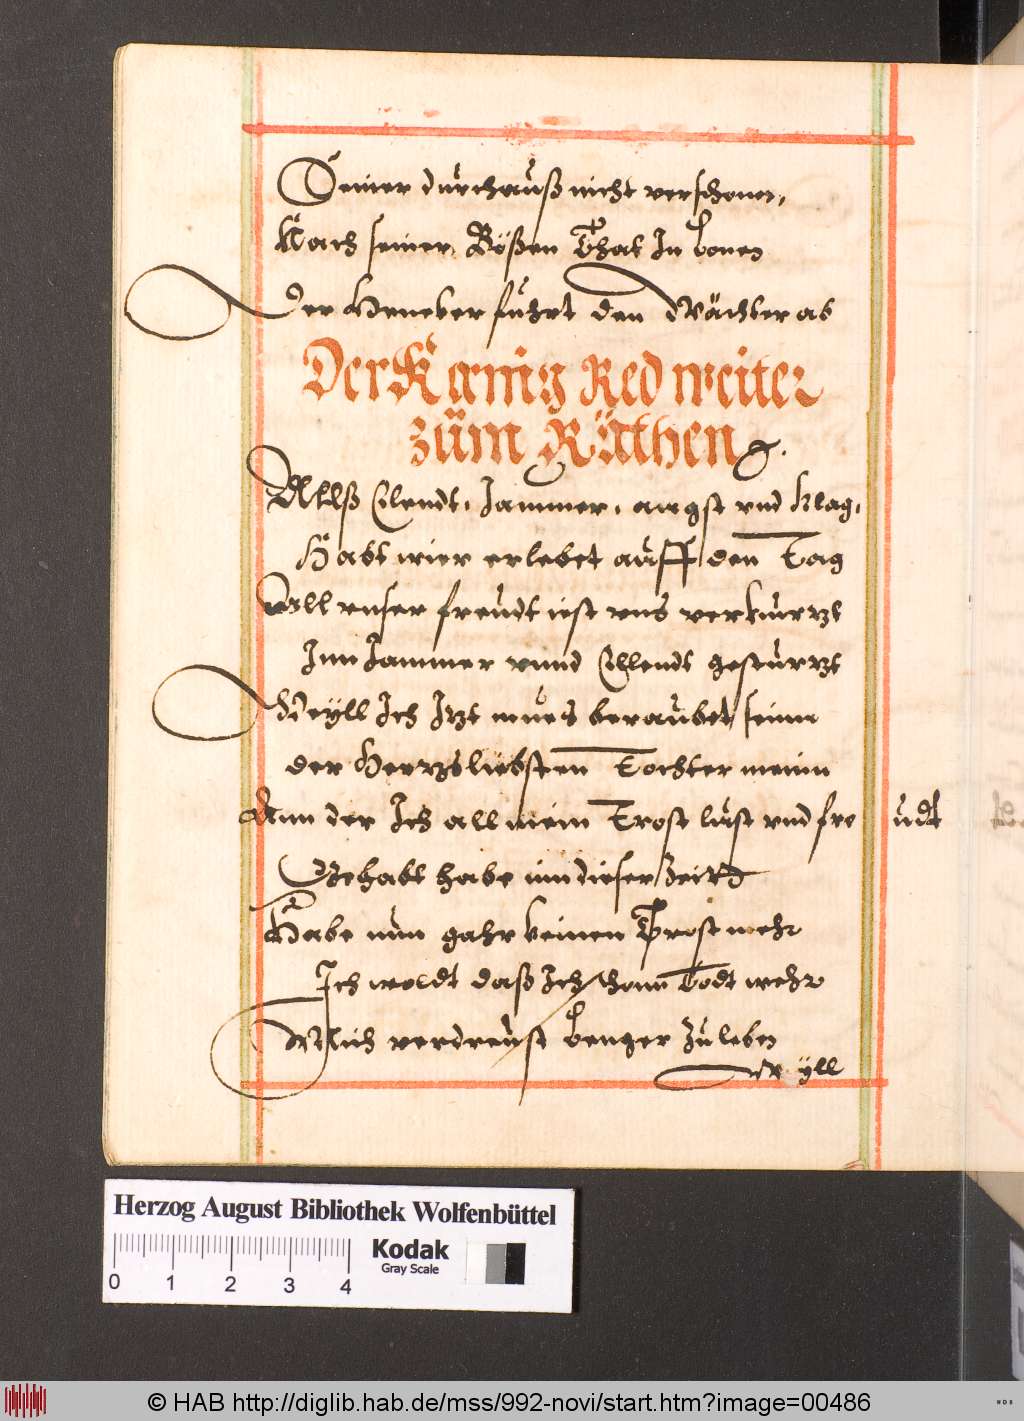 Seiner durchauß nicht verschonen,
Nach seiner Bößen That Im Lonen
Der Hencker führt den Wächter ab
Der Kœnig Red weiter
züm Räthen
Allß Ellendt, Jammer, angst vnd klag,
Habt wier erlebet auff den Tag
voll vnser freudt ist vns verkürtzt
Inn Jammer vnnd Ellendt gestürtzt
Weyll Ich Itzt mues beraubet seinn
der Hertzsliebsten Tochter meinn
Ann der Ich all mein Trost lust vnd freudt
Gehabt habe inn dieser Zeitt
Habe nun gahr keinen Trost mehr
Ich woldt daß Ich schonn Todt wehr
Mich verdreust Lenger zu leben
Weyll
Herzog August Bibliothek Wolfenbüttel
0 1 2 3 4
Kodak
Gray Scale
© HAB http://diglib.hab.de/mss/992-novi/start.htm?image=00486